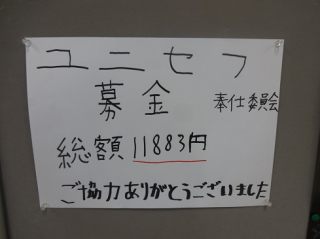 ユニセフ
募金 奉仕委員会
総額 11883円
ご協力ありがとうございました